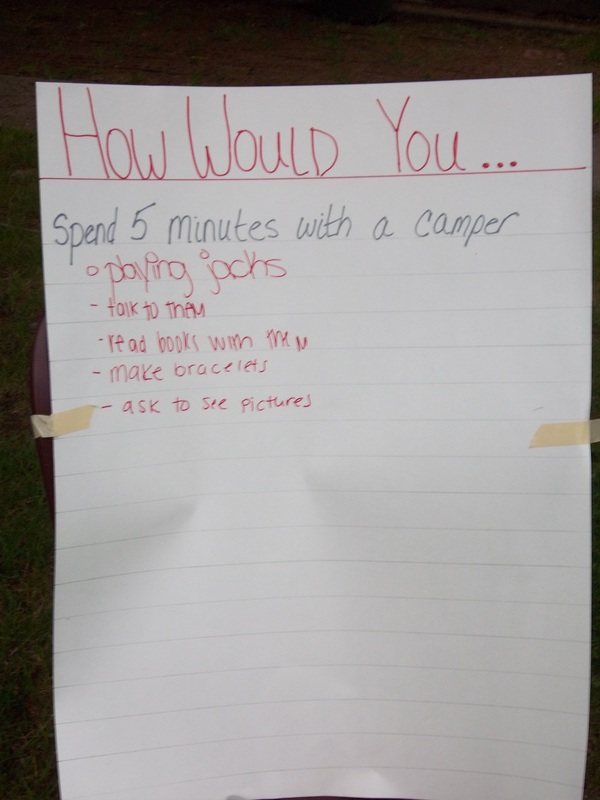 HOW WOULD YOU...
Spend 5 minutes with a camper
playing jacks
- talk to them
- read books with them
- make bracelets
- ask to see pictures